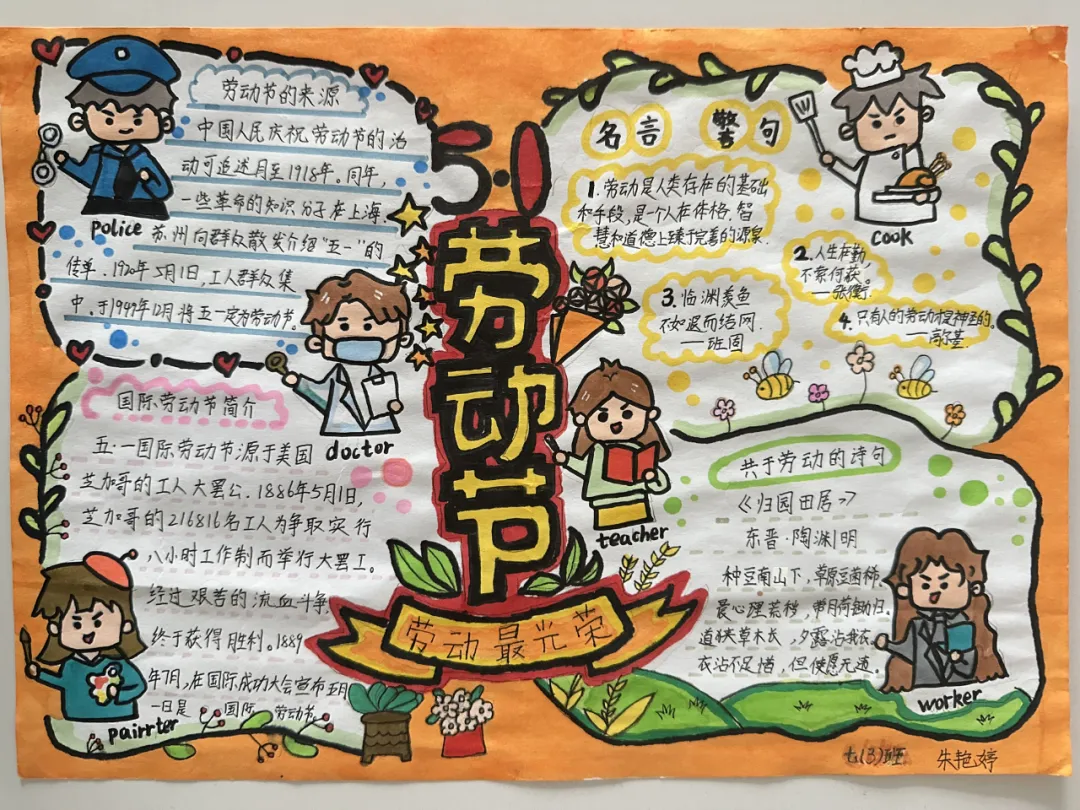 劳动节的来源
中国人民庆祝劳动节的活
动可追述月至1918年。同年,
一些革命的知识分子在上海、
苏州向群众散发介绍"五一"的
传单。1920年5月1日,工人群众集
中。于1949年12月将五一定为劳动节。
police
doctor
国际劳动节简介
五·一国际劳动节源于美国
芝加哥的工人大罢公。1886年5月1日,
芝加哥的216816名工人为争取实行
八小时工作制而举行大罢工。
经过艰苦的流血斗争
终于获得胜利。1889
年7月,在国际成功大会宣布五月
一日是国际劳动节。
pairrter
5·1
劳动节
劳动最光荣
名言警句
1.劳动是人类存在的基础
和手段,是一个人在体格.智
慧和道德上臻于完善的源泉.
2.人生在勤,
不索何获。
——张衡.
3.临渊羡鱼
不如退而结网.
——班固
4.只有人的劳动才是神圣的。
——高尔基.
cook
teacher
共于劳动的诗句
《归园田居》
东晋·陶渊明
种豆南山下,草原豆苗稀.
晨心理荒秽,带月荷锄归.
道狭草木长,夕露沾我衣.
衣沾不足惜,但使愿无违。
worker
七(3)班 朱艳婷